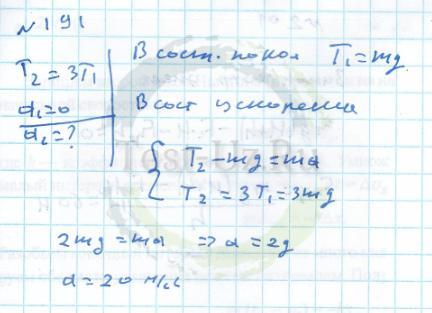 №191
T₂ = 3T₁
a₁ = 0
a₂ = ?
В сост. покоя T₁ = mg
В сост ускорения
T₂ - mg = ma
T₂ = 3T₁ = 3mg
2mg = ma => a = 2g
a = 20 м/с²
Test-Uz.Ru